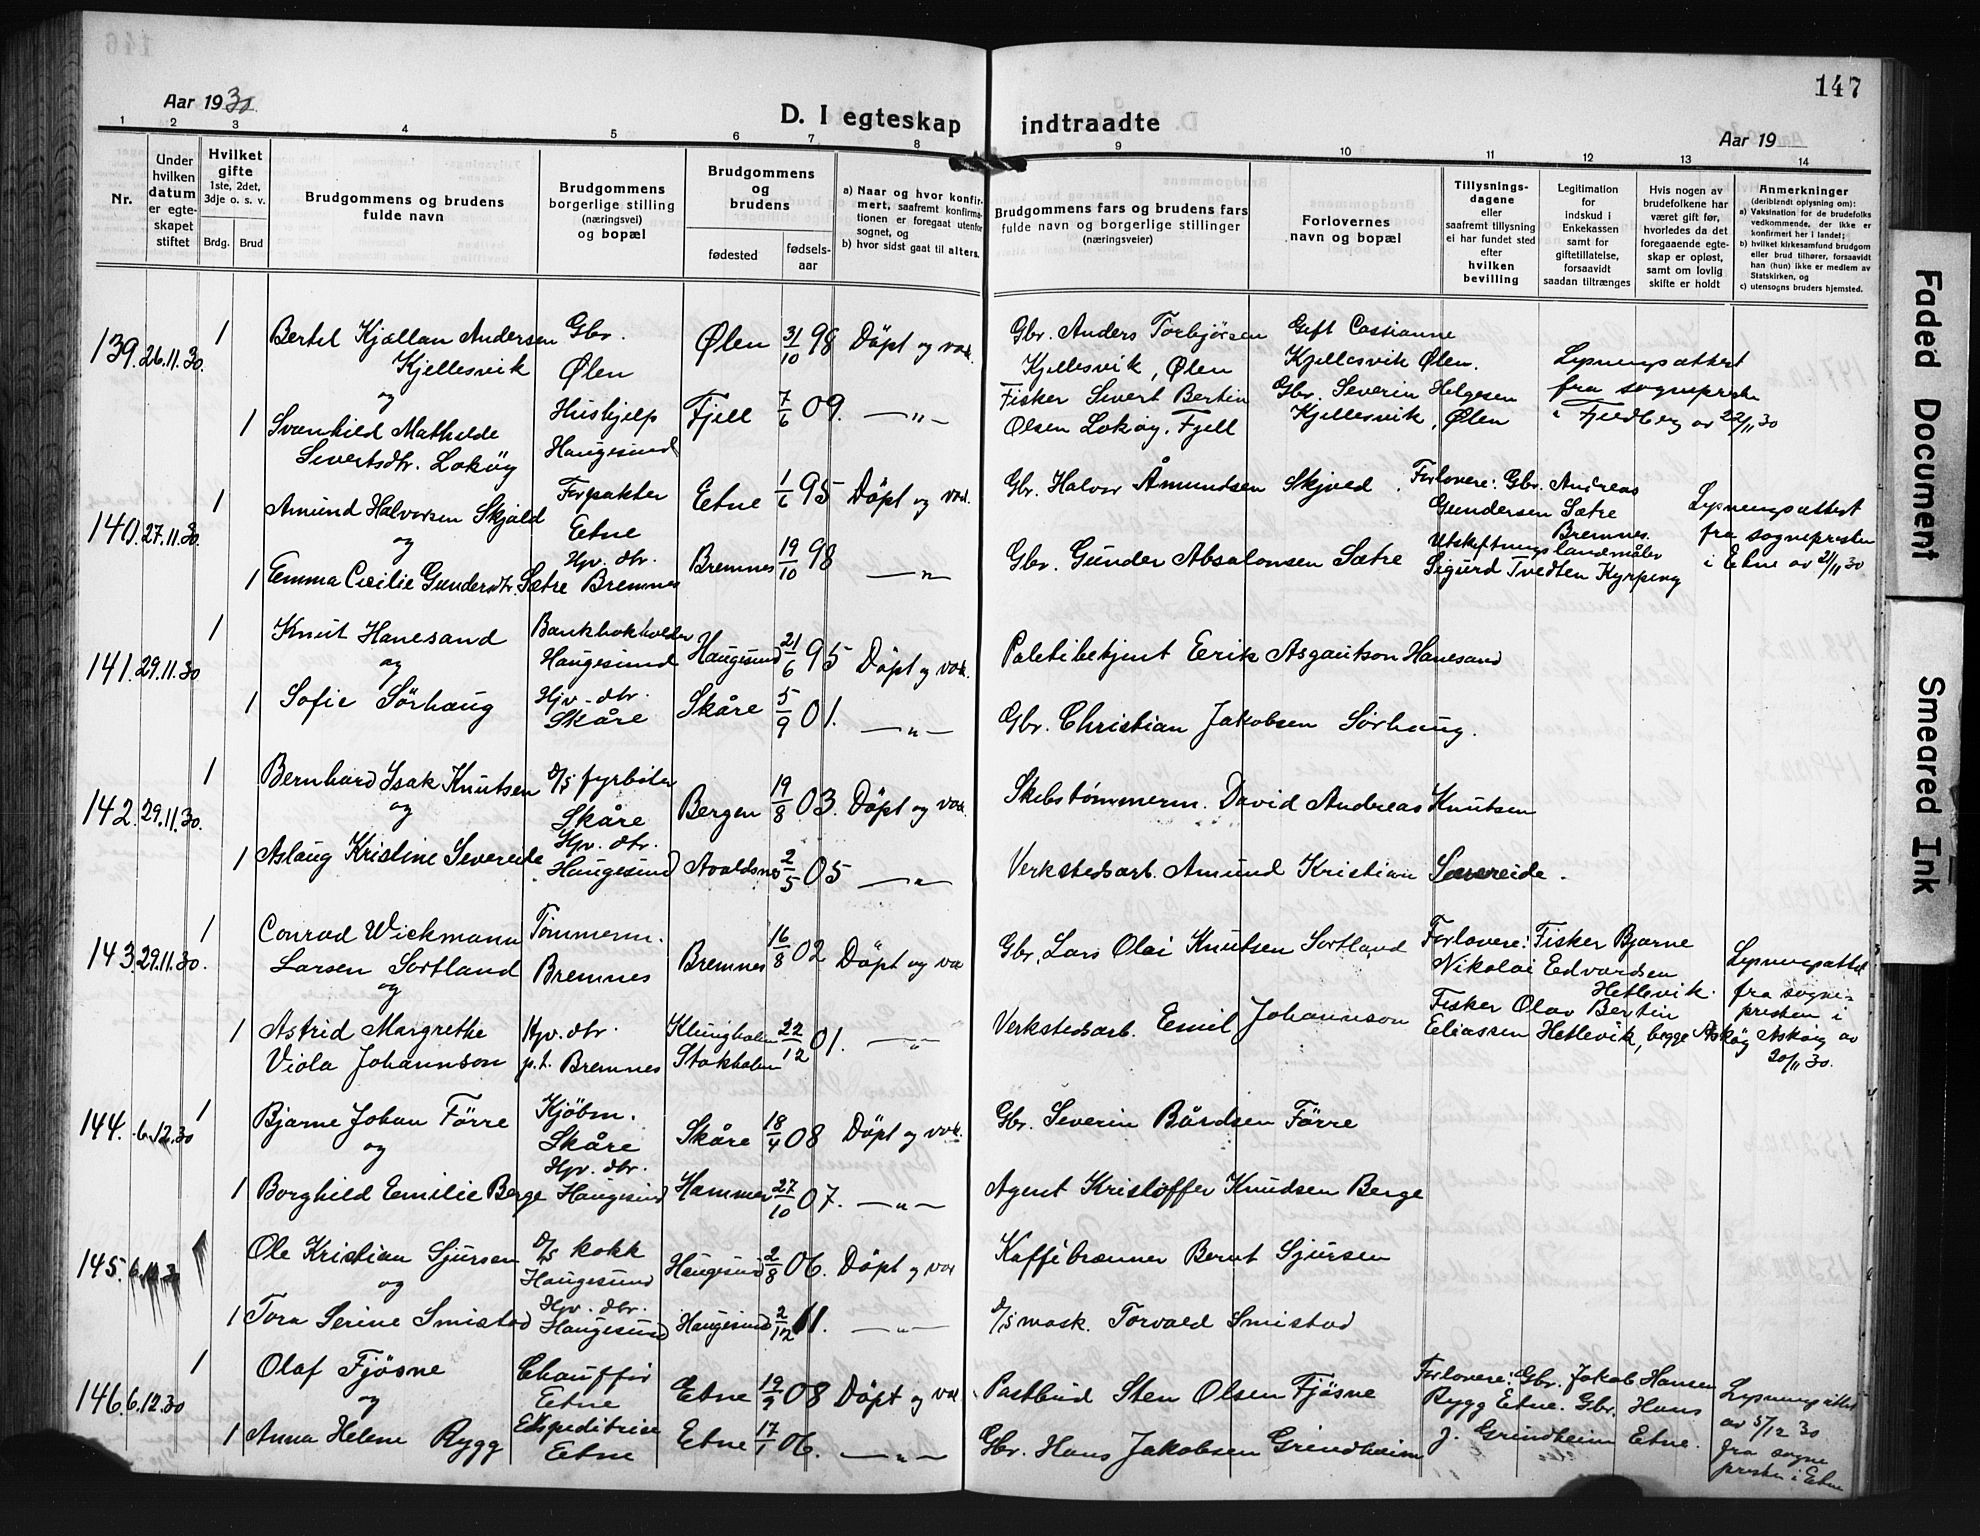 147
Aar 1930
D. I egteskap indtraadte
Aar 19
1 2 3 4 5 6 7 8 9 10 11 12 13 14
Nr.
Under
hvilken
datum
er egte-
skapet
stiftet
Hvilket
gifte
1ste, 2det,
3dje o. s. v.
Brdg. Brud
Brudgommens og brudens
fulde navn
Brudgommens
borgerlige stilling
(næringsvei)
og bopæl
Brudgommens
og
brudens
fødested
fødsels-
aar
a) Naar og hvor konfir-
mert, saafremt konfirma-
tionen er foregaat utenfor
sognet, og
b) hvor sidst gaat til alters.
Brudgommens fars og brudens fars
fulde navn og borgerlige stillinger
(næringsveier)
Forlovernes
navn og bopæl
Tillysnings-
dagene
eller
saafremt tillysning
ei har fundet sted
efter
hvilken
bevilling
Legitimation
for
indskud i
Enkekassen
samt for
giftetillatelse,
forsaavidt
saadan tiltrænges
Hvis nogen av
brudefolkene har
været gift før,
hvorledes da det
foregaaende egte-
skap er opløst,
samt om lovlig
skifte er holdt
Anmerkninger
(deriblandt oplysning om):
a) Vaksination for de brudefolks
vedkommende, der ikke er
konfirmert her i landet;
b) hvilket kirkesamfund brudgom
eller brud tilhører, forsaavidt
han (hun) ikke er medlem av
Statskirken, og
c) utensogns bruders hjemsted.
139. 26.11.30. 1 Bertel Kjællan Andersen Gbr. Ølen 31/10 98 Döpt og vak. Gbr. Anders Torbjörsen Gift Cassianne
Kjellesvik Ølen Kjellesvik, Ølen Kjellesvik Ølen. Lysningsattest
og Hushjelp Fjell 7/6 09. —"— Fisker Sivert Bertin Gbr. Severin Helgesen fra sognepresten
1 Svanhild Mathilde Haugesund Olsen Lokøy, Fjell Kjellesvik, Ølen i Fjedberg av 22/11 30
Sivertsdtr. Loköy
140. 27.11.30. 1 Amund Halvorsen Skjold Forpakter Etne 1/6 95 Döpt og vak. Gbr. Halvor Åmundsen Skjold. Forlovere: Gbr. Andreas Lysningsattest
og Etne Gundersen Sætre Bremnes. fra sognepresten
Hjv. dtr. Bremnes 19/10 98 —"— Gbr. Gunder Absalonsen Sætre Utskiftningslandmåler i Etne av 21/11 30
1 Emma Cecilie Gundersdtr. Sætre Bremnes Sigurd Tvedten Kyrping
141. 29.11.30 1 Knut Hanesand Bankbokholder Haugesund 21/6 95 Döpt og vak. Politibetjent Erik Asgautson Hanesand
og Haugesund
1 Sofie Sörhaug Hjv. dtr. Skåre 5/9 01. —"— Gbr. Christian Jakobsen Sörhaug.
Skåre
142. 29.11.30. 1 Bernhard Isak Knutsen d/s fyrböter Bergen 19/8 03. Döpt og vak Skibstömmerm. David Andreas Knutsen
og Skåre
Hjv. dtr.
1 Aslaug Kristine Severeide Haugesund Avaldsnes 2/5 05 —"— Verkstedsarb. Amund Kristian Severeide.
143. 29.11.30. 1 Conrad Wickmann Tömmerm. Bremnes 16/8 02 Döpt og va Gbr. Lars Olai Knutsen Sortland Forlovere: Fisker Bjarne Lysningsattest
Larsen Sortland Bremnes Nikolai Edvardsen fra sogne-
og Hetlevik. presten i
1 Astrid Margrethe Hjv. dtr. Klungholm 22/12 01. —"— Verkstedsarb. Emil Johannson Fisker Olav Bertin Askøy av
Viola Johannson p.t. Bremnes Stokholm Eliassen Hetlevik, begge Askøy 20/11 30.
144. 6.12.30 1 Bjarne Johan Förre Kjöbm. Skåre 18/4 08 Döpt og vak. Gbr. Severin Bårdsen Förre
og Skåre
Hjv. dtr.
1 Borghild Emilie Berge Haugesund Hammer 27/10 07. —"— Agent Kristoffer Knudsen Berge
145. 6.12.30 1 Ole Kristian Sjursen d/s kokk Haugesund 2/8 06. Döpt og vak Kaffébrænner Bernt Sjursen
og Haugesund
Hjv. dtr.
1 Tora Serine Smistad Haugesund Haugesund 2/12 11. —"— d/s mask. Torvald Smistad
146. 6.12.30 1 Olaf Fjösne Chaufför Etne 19/9 08 Döpt og vak Postbud Sten Olsen Fjösne Forlovere: Gbr. Jakob Hansen Lysningsattest
og Etne Rygg Etne. Gbr. Hans av 5/12 30
1 Anna Helene Rygg Ekspeditrise Etne 17/1 06. —"— Gbr. Hans Jakobsen Grindheim J. Grindheim Etne. fra sogne
Etne presten i Etne
Faded Document
Smeared Ink